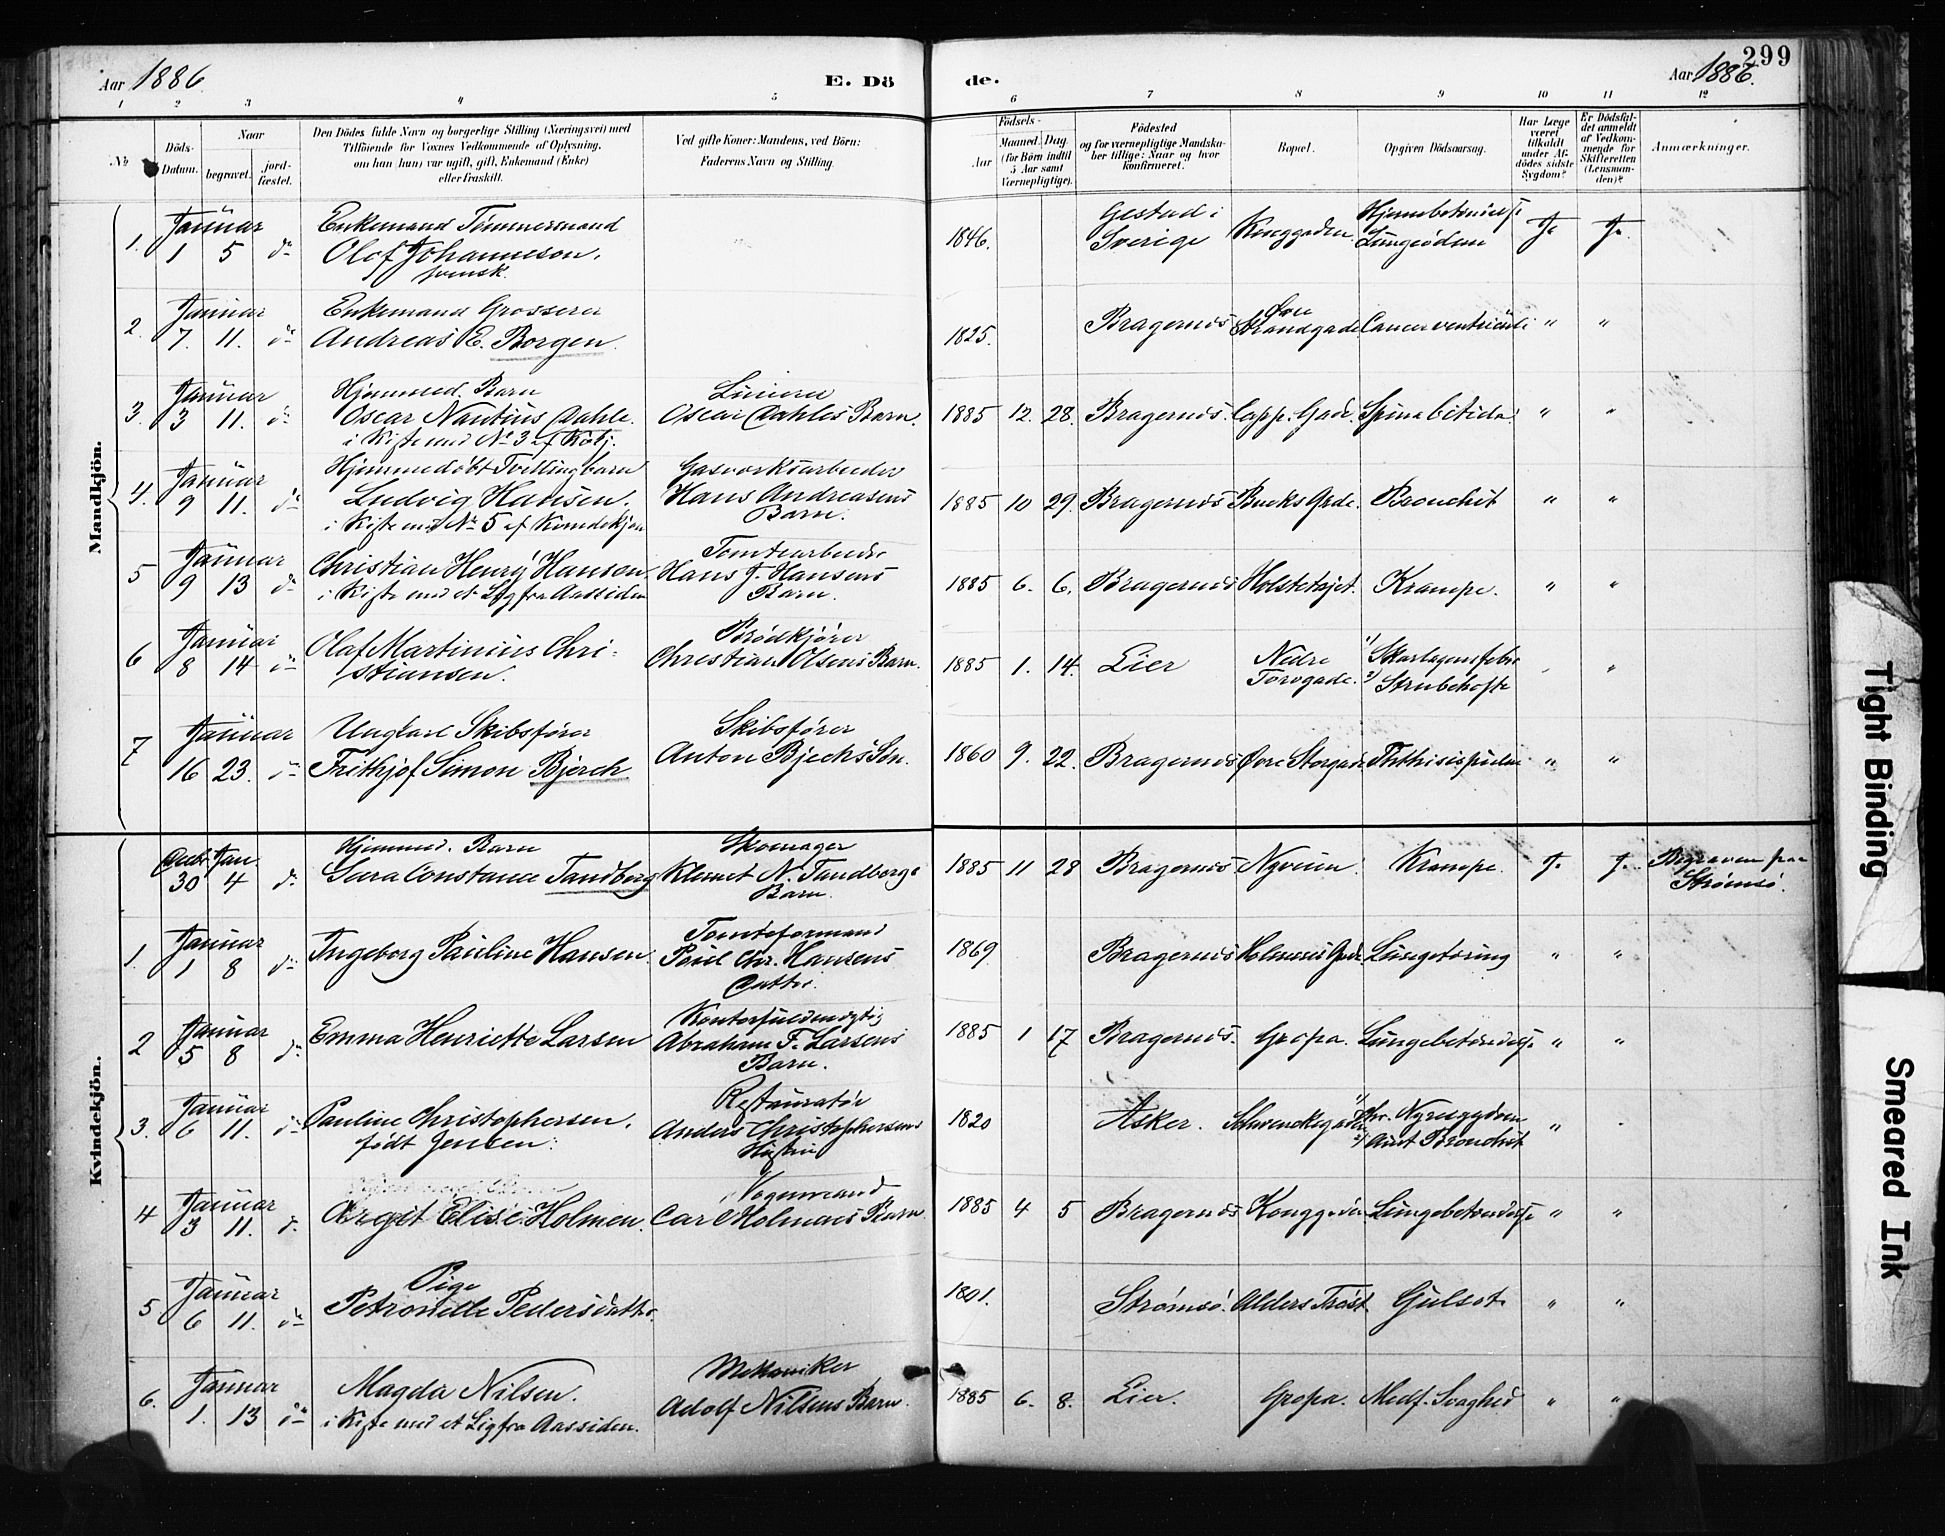 299
Aar 1886
E. Dö
de.
Aar 1886.
1 2 3 4 5 6 7 8 9 10 11 12
No
Döds-Datum.
Naar
begravet.
jordfæstet.
Den Dödes fulde Navn og borgerlige Stilling (Næringsvei) med
Tilföiende for Voxnes Vedkommende af Oplysning,
om han (hun) var ugift, gift, Enkemand (Enke)
eller fraskilt.
Ved gifte Koner: Mandens, ved Börn:
Faderens Navn og Stilling.
Födsels-
Aar
Maaned
Dag
(for Börn indtil
5 Aar samt
Værnepligtige).
Födested
og for værnepligtige Mandskaber tillige: Naar og hvor
konfirmeret.
Bopæl.
Opgiven Dödsaarsag.
Har Læge
været
tilkaldt
under Afdödes sidste
Sygdom?
Er Dödsfaldet anmeldt
af Vedkommende for
Skifteretten
(Lensmanden)?
Anmærkninger.
Mandkjön.
1. Januar 1 5 do Enkemand Tömmermand
Olof Johanneson.
svensk.
1846. Gestad i Sverige Konggaden. Hjernebetændelse Lungeödem Ja Ja.
2. Januar 7. 11. do Enkemand Grosserer
Andreas E. Borgen.
1825. Bragernæs Övre Strandgade Cancer ventriculi " "
3. Januar 3 11. do Hjemmed. Barn
Oscar Nautius Dahle.
i Kiste med No 3 af Kvkj.
Oscar Dahles Barn.
1885 12. 28. Bragernæs. Capp. Gade. Spina bifida. " "
4. Januar 9 11. do Hjemmedöbt Tvillingbarn
Ludvig Hansen.
i Kiste med No 5 af Kvindekjön
Gasverksarbeider
Hans Andreasens
Barn.
1885 10 29. Bragernæs Bucks Gade. Bronchit " "
5 Januar 9 13 do Christian Henry Hansen.
i Kiste med et Lig fra Aassiden
Tomtearbeider
Hans J. Hansens
Barn.
1885 6. 6. Bragernæs Holstetöjet. Krampe. " "
6 Januar 8 14 do Olaf Martinius Christiansen.
Brödkjörer
Christian Olsens Barn.
1885 1. 14. Lier Nedre Torvgade. 1) Skarlagensfeber 2) Strubehoste "
7 Januar 16 23. do Ungkarl Skibsförer
Frithjof Simon Bjerck
Skibsförer
Anton Bjecks Sön.
1860 9. 22. Bragernæs Övre Storgade Phthisis pulm " "
Kvindekjön.
Decbr 30 Jan. 4 do Hjemmed. Barn
Sara Constance Tandberg
Skomager
Klemet N. Tandbergs
Barn.
1885 11 28 Bragernæs Nyveien. Krampe. Ja Ja. Begraven paa
Strømsö.
1. Januar 1 8 do Ingeborg Pauline Hansen.
Tomteformand
Poul Chr. Hansens
Datter.
1869. Bragernæs Holmens Gade. Lungetæring " "
2 Januar 5 8 do Emma Henriette Larsen
Kontorfuldmægtig
Abraham F. Larsens
Barn.
1885 1 17 Bragernæs. Gropa. Lungebetændelse " "
3. Januar 6 11. do Pauline Christophersen,
födt Jensen.
Restauratör
Anders Christophersens
Hustru
1820 Asker. Schwenckegaden 1) chr. Nyresygdom 2) acut Bronchit "
4 Januar 3 11. do Argit Elise Holmen.
Vognmand
Carl Holmens Barn.
1885 4 5 Bragernæs Konggaden Lungebetændelse " "
5 Januar 6 11. do Pige
Petronelle Pedersdatter.
1801. Strömsö. Alders Tröst Gulsot " "
6. Januar 1. 13 do Magda Nilsen.
i Kiste med et Lig fra Aassiden.
Mekaniker
Adolf Nilsens Barn.
1885 6. 8. Lier. Gropa. Medf. Svaghed " "
Tight Binding
Smeared Ink